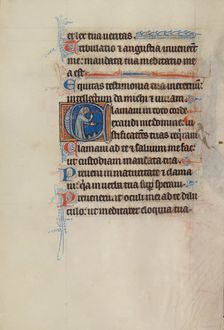 et lex tua veritas.
Tribulatio et angustia invenerūt
me: mandata tua meditatio me
a est.
Equitas testimonia tua in eternū:
intellectum da michi et vivam.
Clamavi in toto corde
exaudi me domine: iu
stificationes tuas requirā.
Clamavi ad te salvum me fac:
ut custodiam mandata tua.
Preveni in maturitate et clama
vi: quia in verba tua supersperavi.
Prevenerunt oculi mei ad te di
luculo: ut meditarer eloquia tua.